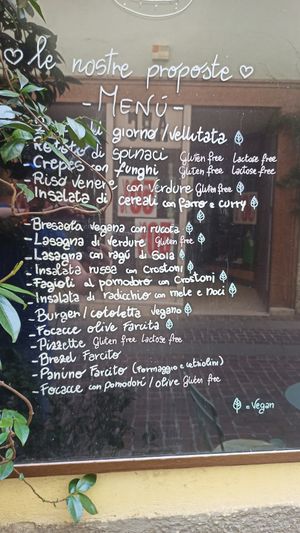 ♡ le nostre proposte ♡
- MENÚ -
giorno/vellutata
Rotolo di spinaci Gluten free Lactose free
- Crepes con funghi Gluten free Lactose free
- Riso venere con verdure Gluten free
- Insalata di cereali con farro e curry
- Bresaola vegana con rucola
- Lasagna di verdure Gluten free
- Lasagna con ragù di soia
- Insalata russa con crostoni
- Fagioli al pomodoro con crostoni
- Insalata di radicchio con mele e noci
- Burger/cotoletta vegano
- Focacce olive farcita
- Pizzette Gluten free Lactose free
- Brezel farcito
- Panino farcito (formaggio e cetriolini)
- Focacce con pomodori/olive Gluten free
= Vegan